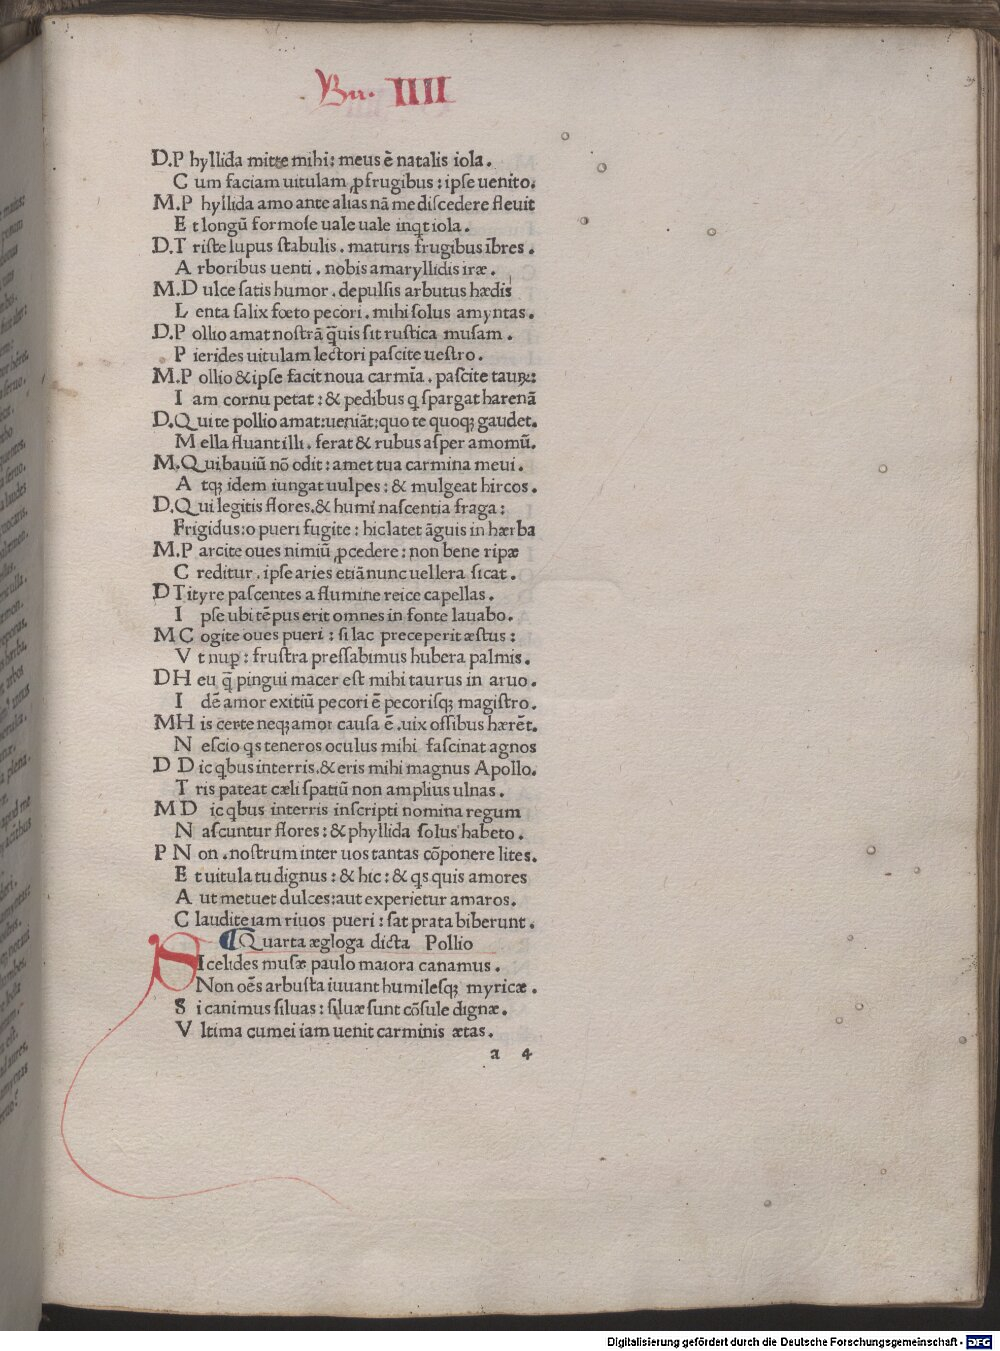 Bu. IIII
D.P hyllida mitte mihi: meus ē natalis iola.
C um faciam uitulam ꝓ frugibus: ipſe uenito.
M.P hyllida amo ante alias nā me diſcedere fleuit
E t longū formoſe uale uale inqt iola.
D.T riſte lupus ſtabulis. maturis frugibus ībres.
A rboribus uenti. nobis amaryllidis iræ.
M.D ulce ſatis humor. depulſis arbutus hædis
L enta ſalix fœto pecori. mihi ſolus amyntas.
D.P ollio amat noſtrā q̄uis ſit ruſtica muſam.
P ierides uitulam lectori paſcite ueſtro.
M.P ollio & ipſe facit noua carmīa. paſcite tauꝝ:
I am cornu petat: & pedibus q ſpargat harenā
D.Q ui te pollio amat: ueniāt: quo te quoqꝫ gaudet.
M ella fluant illi. ferat & rubus aſper amomū.
M.Q ui bauiū nō odit: amet tua carmina meui.
A tqꝫ idem iungat uulpes: & mulgeat hircos.
D.Q ui legitis flores. & humi naſcentia fraga:
Frigidus: o pueri fugite: hic latet āguis in hærba
M.P arcite oues nimiū ꝓcedere: non bene ripæ
C reditur. ipſe aries etiā nunc uellera ſicat.
D T ityre paſcentes a flumine reice capellas.
I pſe ubi tēpus erit omnes in fonte lauabo.
M C ogite oues pueri: ſi lac preceperit æſtus:
V t nuꝑ: fruſtra preſſabimus hubera palmis.
D H eu q̄ pingui macer eſt mihi taurus in aruo.
I dē amor exitiū pecori ē pecoriſqꝫ magiſtro.
M H is certe neqꝫ amor cauſa ē. uix oſſibus hærēt.
N eſcio qs teneros oculus mihi faſcinat agnos
D D ic qbus in terris. & eris mihi magnus Apollo.
T ris pateat cæli ſpatiū non amplius ulnas.
M D ic qbus in terris inſcripti nomina regum
N aſcuntur flores: & phyllida ſolus habeto.
P N on. noſtrum inter uos tantas cōponere lites.
E t uitula tu dignus: & hic: & qs quis amores
A ut metuet dulces: aut experietur amaros.
C laudite iam riuos pueri: ſat prata biberunt.
¶ Quarta ægloga dicta Pollio
S Icelides muſæ paulo maiora canamus.
Non oēs arbuſta iuuant humileſqꝫ myricæ.
S i canimus ſiluas: ſiluæ ſunt cōſule dignæ.
V ltima cumei iam uenit carminis ætas.
a 4
Digitalisierung gefördert durch die Deutsche Forschungsgemeinschaft - DFG